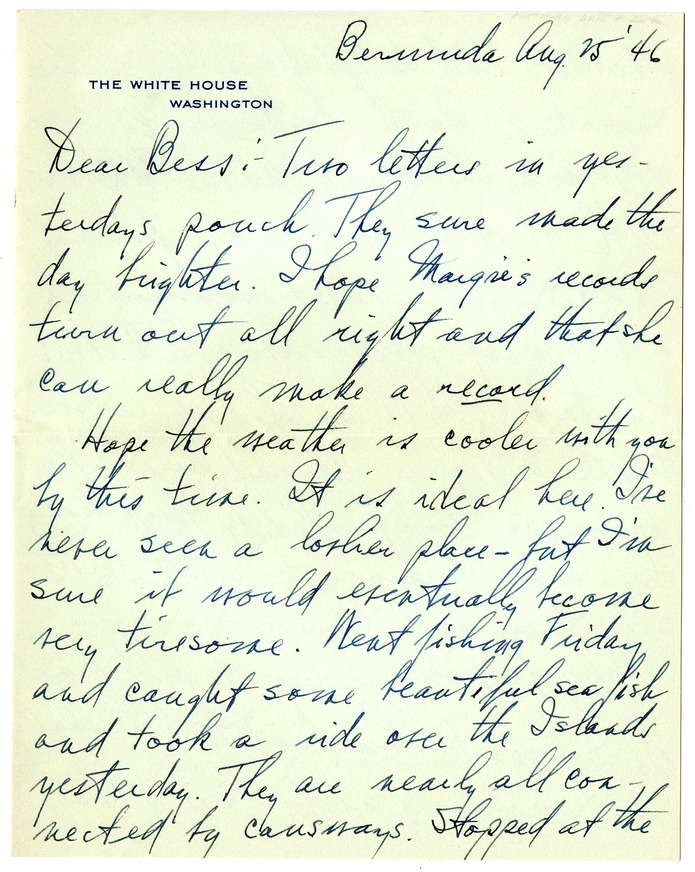 Bermuda Aug. 25 '46
THE WHITE HOUSE
WASHINGTON
Dear Bess:- Two letters in yes-
terdays pouch. They sure made the
day brighter. I hope Margie's records
turn out all right and that she
can really make a record.
Hope the weather is cooler with you
by this time. It is ideal here. I've
never seen a place - but I'm
sure it would eventually become
very tiresome. Went fishing Friday
and caught some beautiful sea fish
and took a ride over the Islands
yesterday. They are nearly all con-
nected by causways. Stopped at the